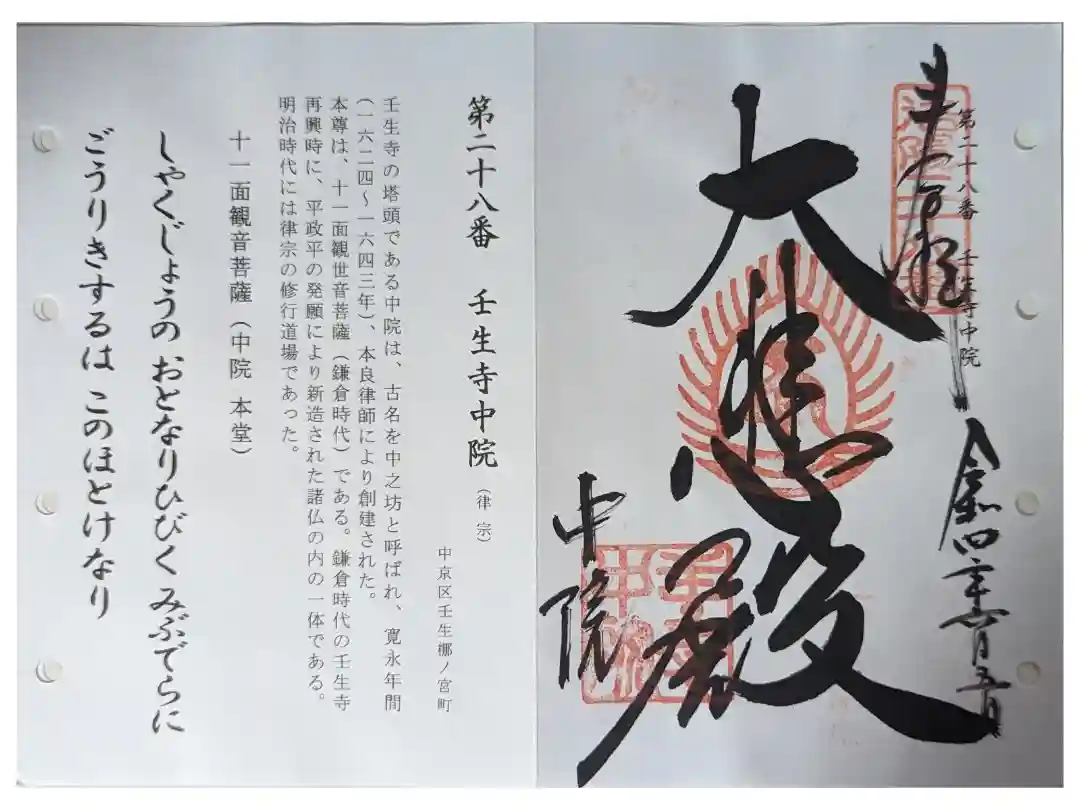 奉拝
第二十八番 壬生寺中院
令和四年六月五日
大悲殿
中院
第二十八番 壬生寺中院(律宗)
中京区壬生梛ノ宮町
壬生寺の塔頭である中院は、古名を中之坊と呼ばれ、寛永年間
(一六二四~一六四三年)、本良律師により創建された。
本尊は、十一面観世音菩薩(鎌倉時代)である。鎌倉時代の壬生寺
再興時に、平政平の発願により新造された諸仏の内の一体である。
明治時代には律宗の修行道場であった。
十一面観音菩薩(中院 本堂)
しゃくじょうの おとなりひびく みぶでらに
ごうりきするは このほとけなり